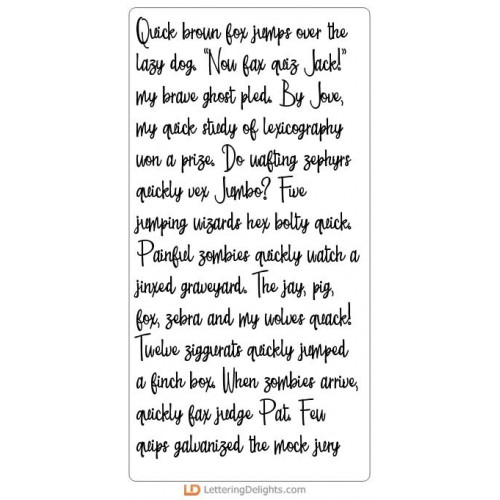 Quick brown fox jumps over the
lazy dog. "Now fax quiz Jack!"
my brave ghost pled. By Jove,
my quick study of lexicography
won a prize. Do wafting zephyrs
quickly vex Jumbo? Five
jumping wizards hex bolty quick.
Painful zombies quickly watch a
jinxed graveyard. The jay, pig,
fox, zebra and my wolves quack!
Twelve ziggurats quickly jumped
a finch box. When zombies arrive,
quickly fax judge Pat. Few
quips galvanized the mock jury
LD LetteringDelights.com